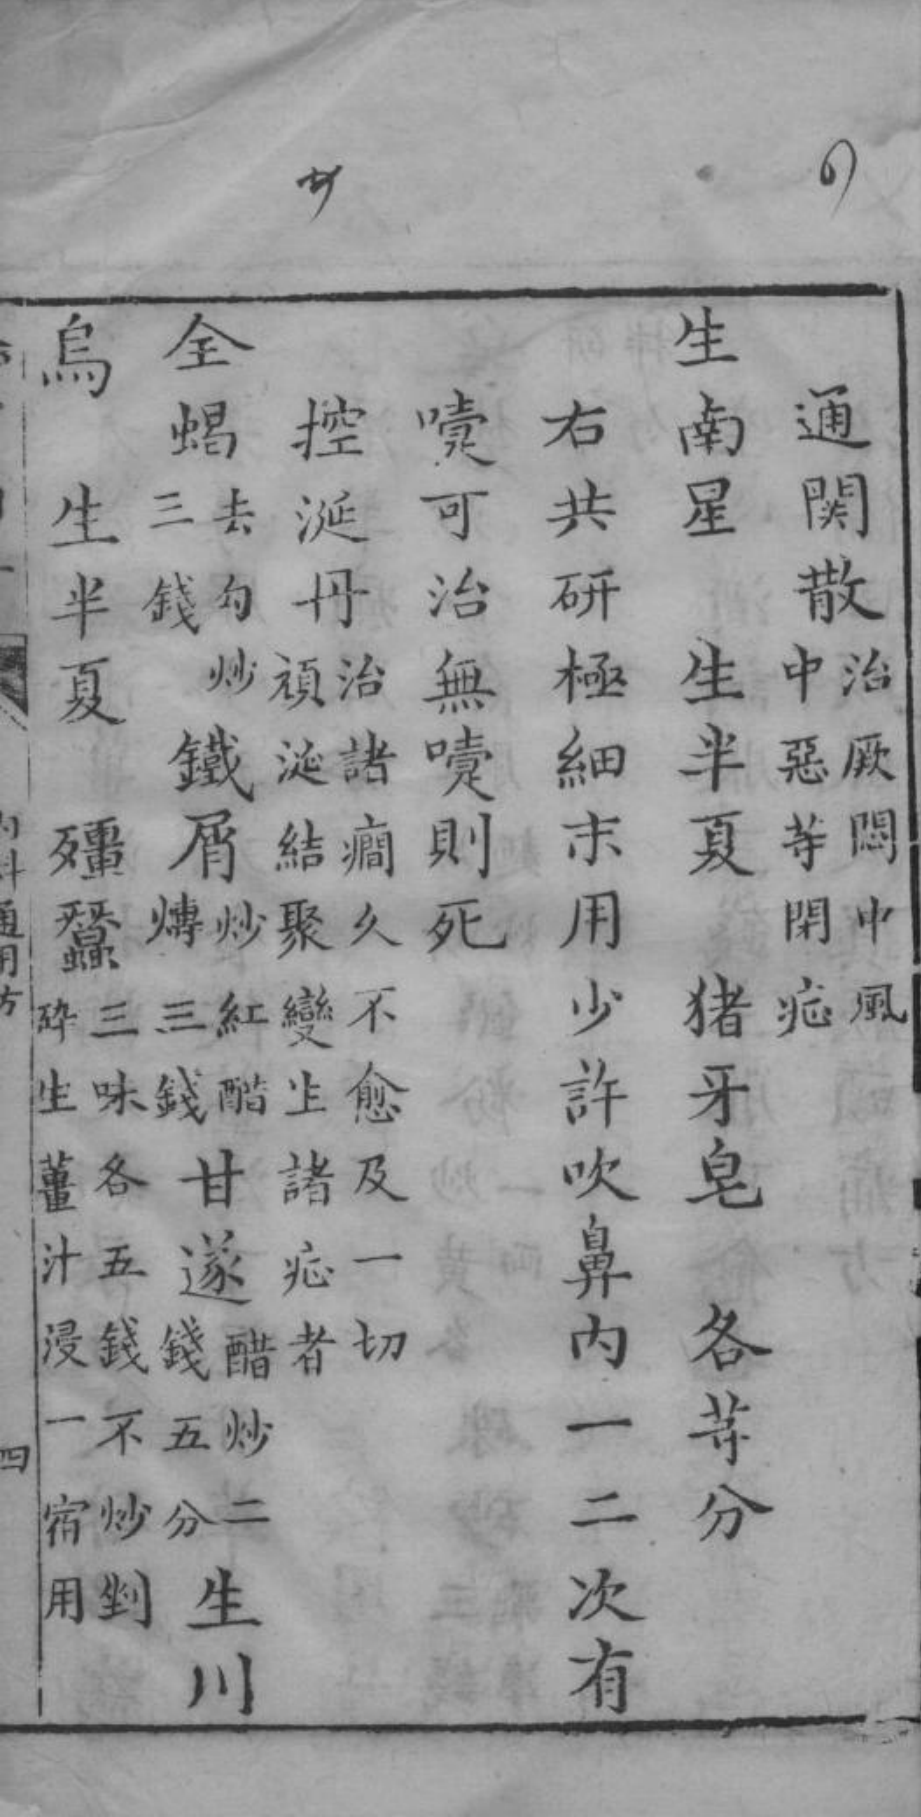 通関散治厥悶中風中惡等閉症
生南星　生半夏　猪牙皂　各等分
右共研極細末用少許吹鼻內一二次有
嚏可治無嚏則死
控涎丹治諸癇久不愈及一切頑涎結聚變生諸症者
全蝎去勾炒三錢鐵屑炒紅醋煿三錢甘遂醋炒二錢五分生川
烏　生半夏　殭蠶三味各五錢不炒剉碎生薑汁浸一宿用
內科通用方
四